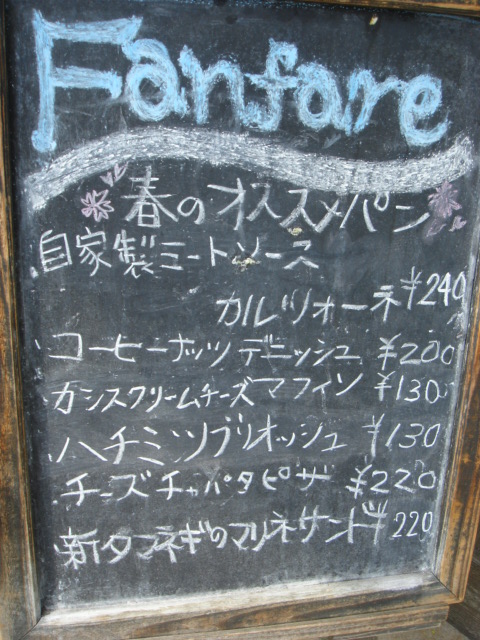 Fanfare
春のオススメパン
自家製ミートソース
カルツォーネ ¥240
コーヒーナッツデニッシュ ¥200
カシスクリームチーズマフィン ¥130
ハチミツブリオッシュ ¥130
チーズチャパタピザ ¥220
新タマネギのマリネサンド ¥220